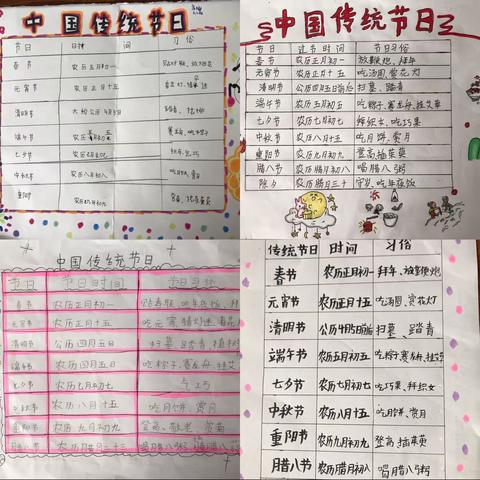 中国传统节日
节日 时间 习俗
春节 农历正月初一
元宵节 农历正月十五
清明节
端午节
七夕节
中秋节
重阳
中国传统节日
节日 过节时间 节日习俗
春节 农历正月初一 放鞭炮、拜年
元宵节 农历正月十五 吃汤圆、赏花灯
清明节 扫墓、踏青
端午节 农历五月初五 吃粽子、赛龙舟、挂艾草
七夕节 农历七月初七 拜织女、吃巧果
中秋节 农历八月十五 吃月饼、赏月
重阳节 农历九月初九 登高、插茱萸
腊八节 农历腊月初八 喝腊八粥
除夕 农历腊月三十 守岁、吃年夜饭
中国传统节日
节日 节日时间 节日习俗
春节 农历正月初一
元宵节 农历正月十五
清明节 公历四月五日 扫墓 踏青 植树
端午节 农历四月五日 吃粽子、赛龙舟、挂艾
七夕节 农历七月初七 乞巧
中秋节 农历八月十五 吃月饼、赏月
重阳节 农历九月初九 登高、敬老、赏菊
腊八节 喝腊八粥
传统节日 时间 习俗
春节 农历正月初一 拜年、放鞭炮
元宵节 农历正月十五 吃汤圆、赏花灯
清明节 扫墓、踏青
端午节 农历五月初五 吃粽子赛龙舟、挂艾
七夕节 农历七月初七 吃巧果、拜织女
中秋节 农历八月十五 吃月饼、赏月
重阳节 农历九月初九 登高、插茱萸
腊八节 农历腊月初八 喝腊八粥